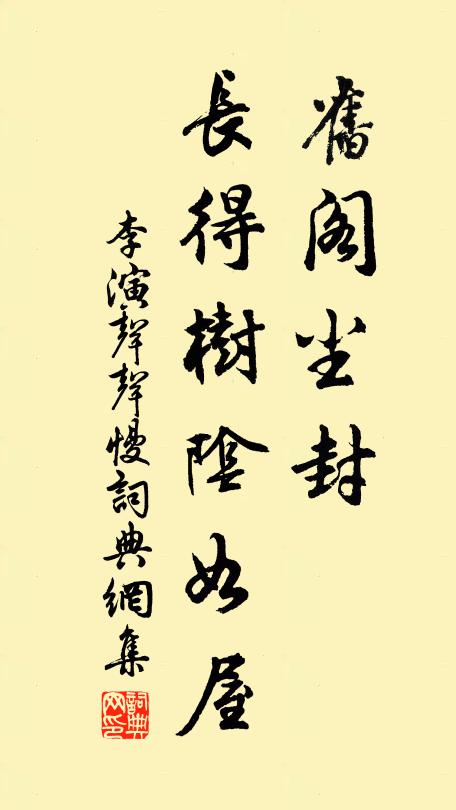 舊閣尘封
長得樹陰如屋
李演聲聲慢詞典網集
詞典网印